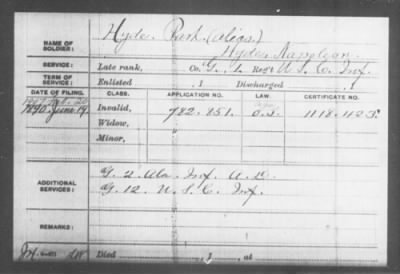 Hyde, Park (alias)
NAME OF SOLDIER: Hyde, Napoleon
SERVICE: Late rank, Co. G, 1 Reg't U. S. C. Inf.
TERM OF SERVICE: Enlisted , 1 Discharged , 1
DATE OF FILING. CLASS. APPLICATION NO. LAW. CERTIFICATE NO.
1890 June 19 Invalid, 782.851 1118.423
Widow, "
Minor,
ADDITIONAL SERVICES: G. 2. Ala. Inf. A. D.
G. 12. U. S. C. Inf.
REMARKS:
Died , 1 , at